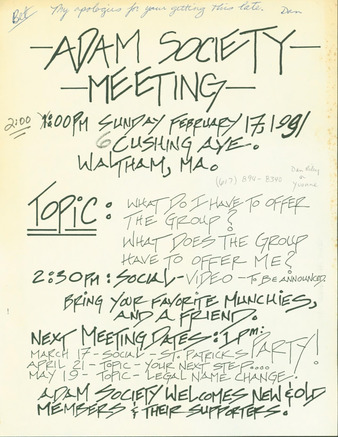 Bet My apologies for your getting this late. Dan
—ADAM SOCIETY—
—MEETING—
2:00 1:00PM SUNDAY FEBRUARY 17, 1991
6 CUSHING AVE.
WALTHAM, MA.
(617) 894-8340
or Yvonne
TOPIC: WHAT DO I HAVE TO OFFER
THE GROUP?
WHAT DOES THE GROUP
HAVE TO OFFER ME?
2:30PM: SOCIAL-VIDEO-TO BE ANNOUNCED
BRING YOUR FAVORITE MUNCHIES,
AND A FRIEND.
NEXT MEETING DATES: 1 PM:
MARCH 17-SOCIAL-ST. PATRICKS PARTY!
APRIL 21-TOPIC-YOUR NEXT STEP....
MAY 19-TOPIC-LEGAL NAME CHANGE.
ADAM SOCIETY WELCOMES NEW & OLD
MEMBERS & THEIR SUPPORTERS.